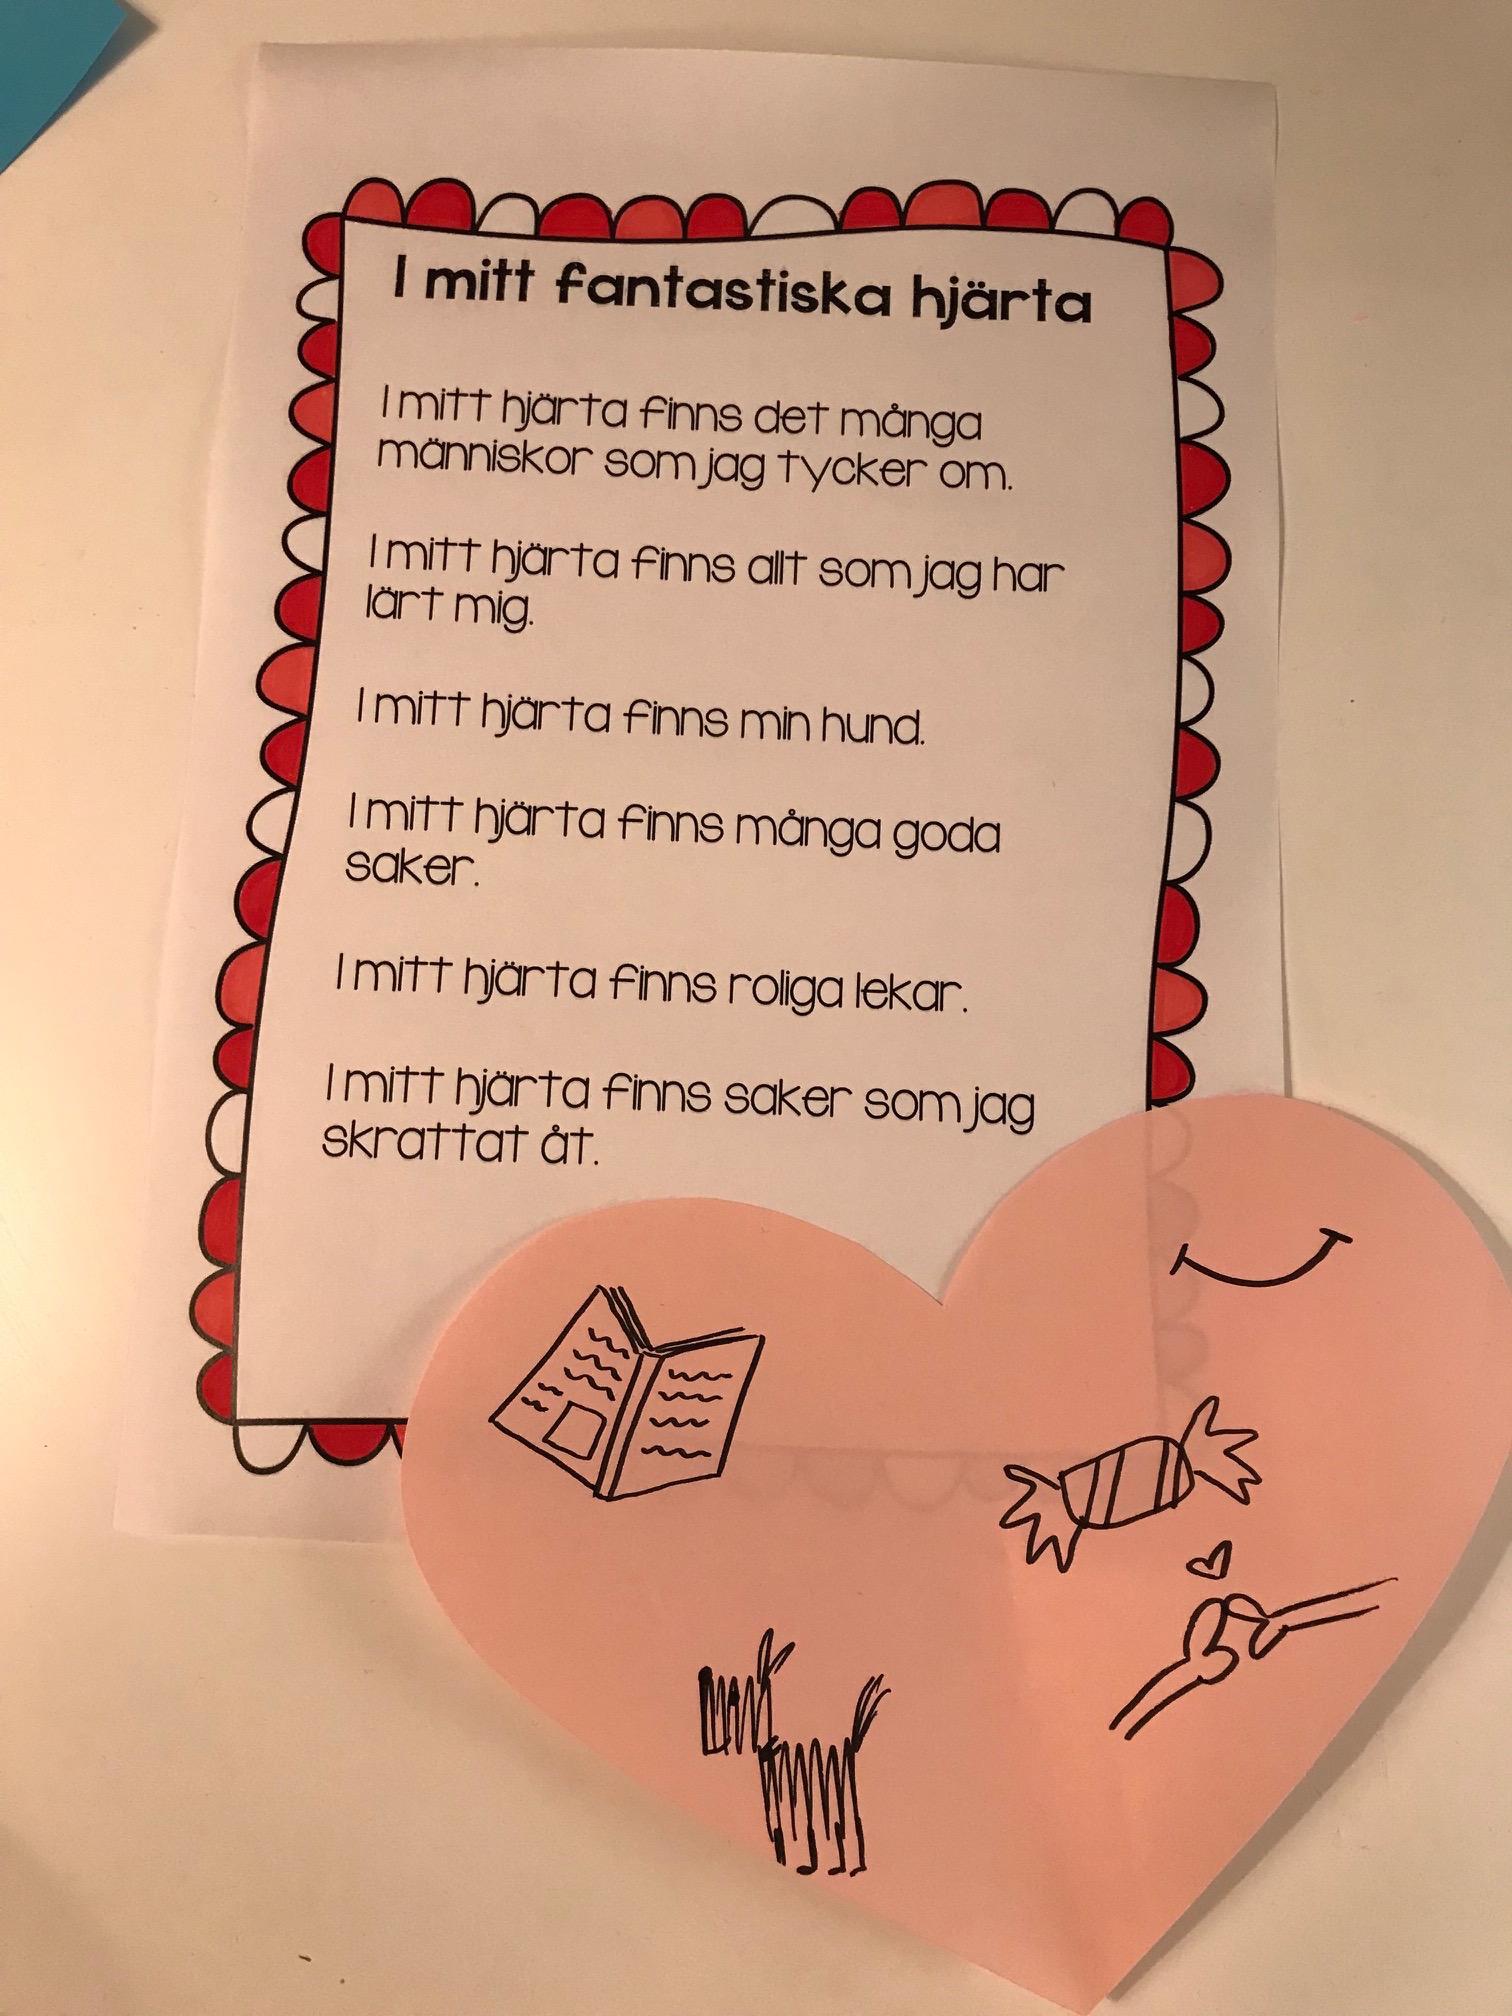 I mitt fantastiska hjärta
I mitt hjärta finns det många
människor som jag tycker om.
I mitt hjärta finns allt som jag har
lärt mig.
I mitt hjärta finns min hund.
I mitt hjärta finns många goda
saker.
I mitt hjärta finns roliga lekar.
I mitt hjärta finns saker som jag
skrattat åt.